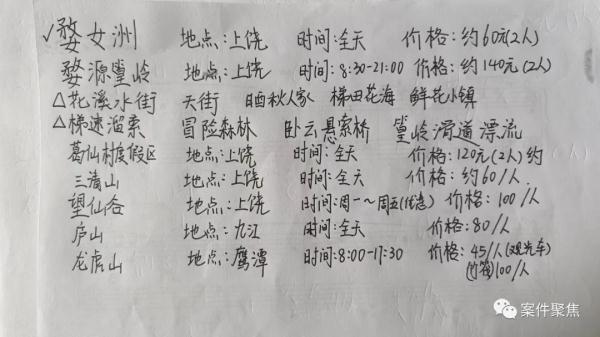 ✓婺女洲 地点:上饶 时间:全天 价格:约60元(2人)
婺源篁岭 地点:上饶 时间:8:30-21:00 价格:约140元(2人)
△花溪水街 天街 晒秋人家 梯田花海 鲜花小镇
△梯速溜索 冒险森林 卧云悬索桥 篁岭滑道漂流
葛仙村度假区 地点:上饶 时间:全天 价格:120元(2人)约
三清山 地点:上饶 时间:全天 价格:约60/人
望仙谷 地点:上饶 时间:周一~周五(优选) 价格:100/人
庐山 地点:九江 时间:全天 价格:80/人
龙虎山 地点:鹰潭 时间:8:00-17:30 价格:45/人(观光车)
(竹筏)100/人
案件聚焦